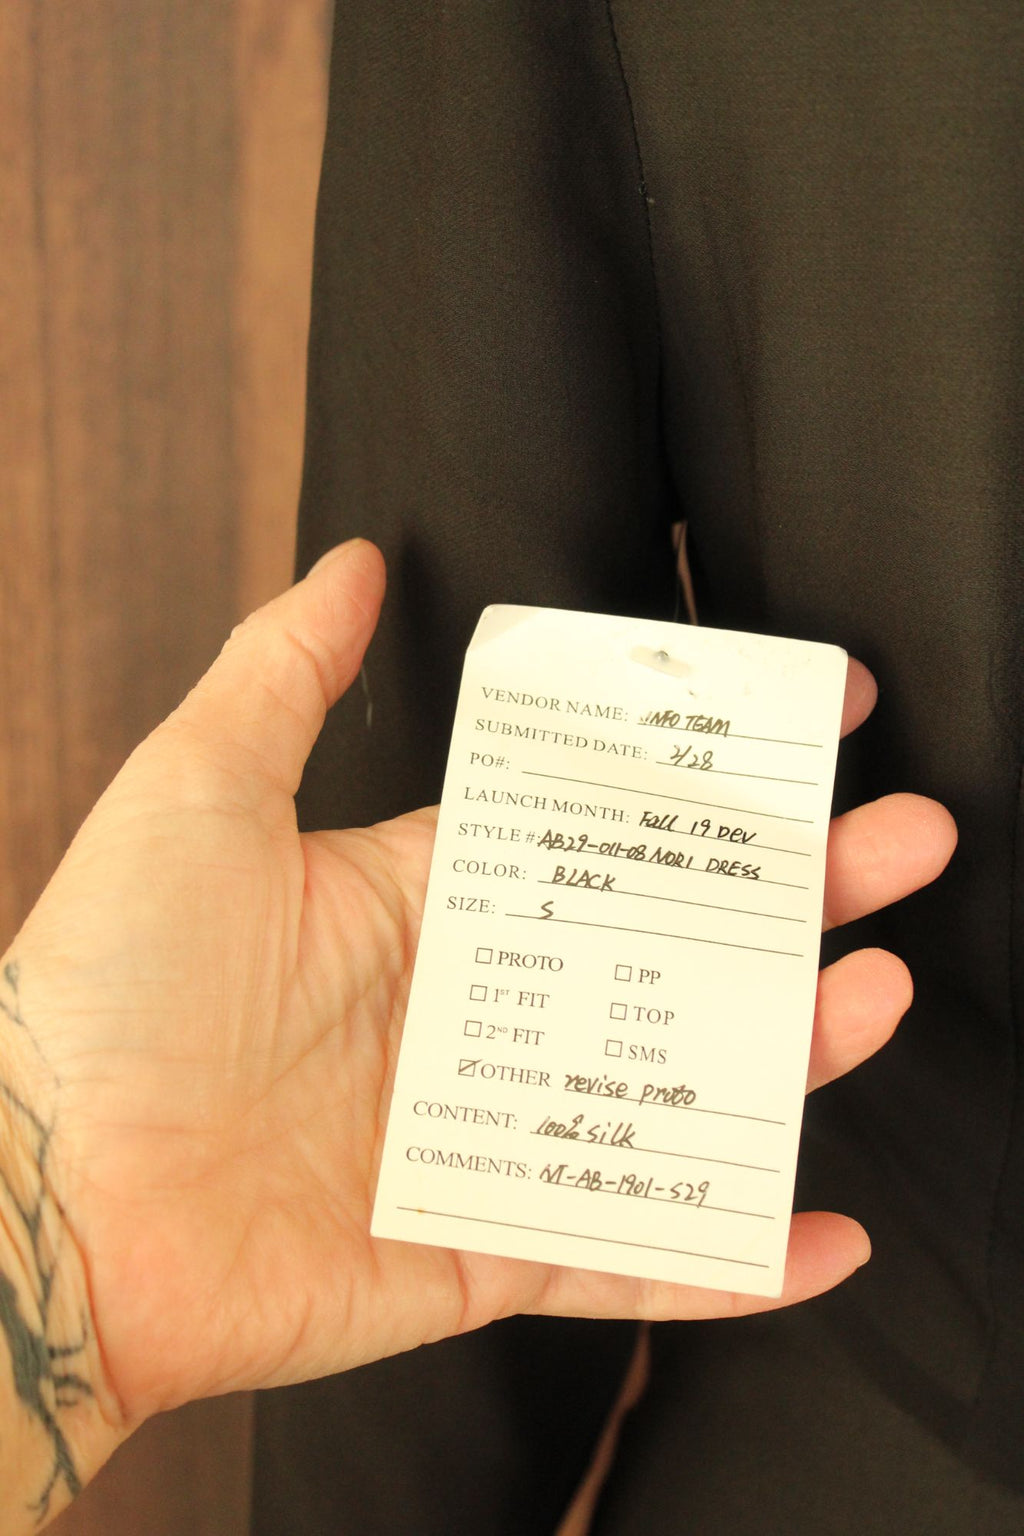 VENDOR NAME: INFO TEAM
SUBMITTED DATE: 2/28
PO#:
LAUNCH MONTH: Fall 19 DEV
STYLE #: AB29-011-08 NORI DRESS
COLOR: BLACK
SIZE: S
☐ PROTO ☐ PP
☐ 1ST FIT ☐ TOP
☐ 2ND FIT ☐ SMS
☑ OTHER revise proto
CONTENT: 100% silk
COMMENTS: NT-AB-1901-S29